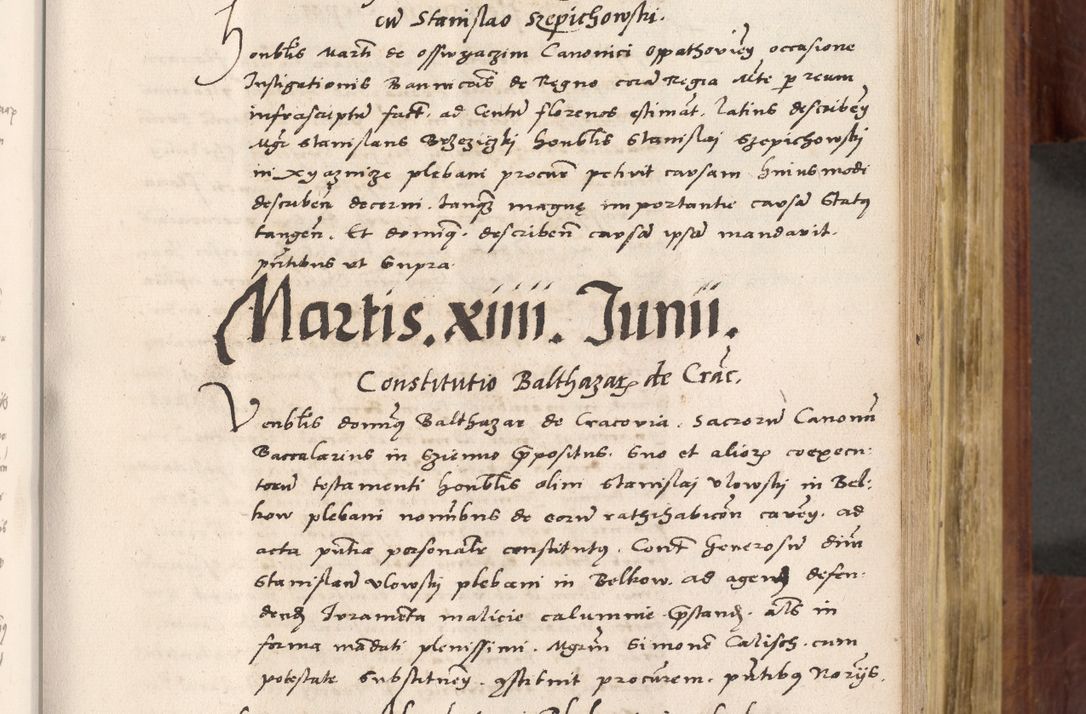 cū Stanislao Szepichowski.
Honblis Marti de Osswyaczim Canonici Oppathovień occasione
Instigationis Bannicōis de Regno corā Regia Mte per reum
infrascriptū fact. ad Centū florenos estimāt. latius describeń
Mgr Stanislaus Brzeziczki honblis Stanislai Szepichowski
in Xyaznize plebani procur petivit causam huiusmodi
describeń decerni. tanq̃ magnę importantie causā Status
tangeń. Et dominus. describeń causā ipsā mandavit.
pñtibus ut supra.
Martis. xiiii. Junii.
Constitutio Balthazar de Crac.
Venblis dominus Balthazar de Cracovia. Sacrorū Canonū
Baccalarius in Szienno prepositus. suo et alior coexecu-
torū testamenti honblis olim Stanislai Ulowski in Bel-
kow plebani nominibus de eorū rathihabicōn caveń. ad
acta pñtia personalr constitutus. Cont Generosū dūm
Stanislaū Ulowski plebani in Belkow. ad agend defen-
dend Juramēta malicie calumnie prestand. als in
forma mādati plenissimi. Mgrm Simonē Calisch. cum
potestate substitueń. constituit procurem. pñtibus Norys.